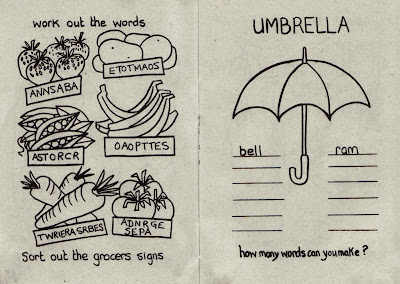 work out the words
ANNSABA
ETOTMAOS
ASTORCR
OAOPTTES
TWRIERASRBES
ADNRGE
SEPA
Sort out the grocers signs
UMBRELLA
bell
ram
how many words can you make?